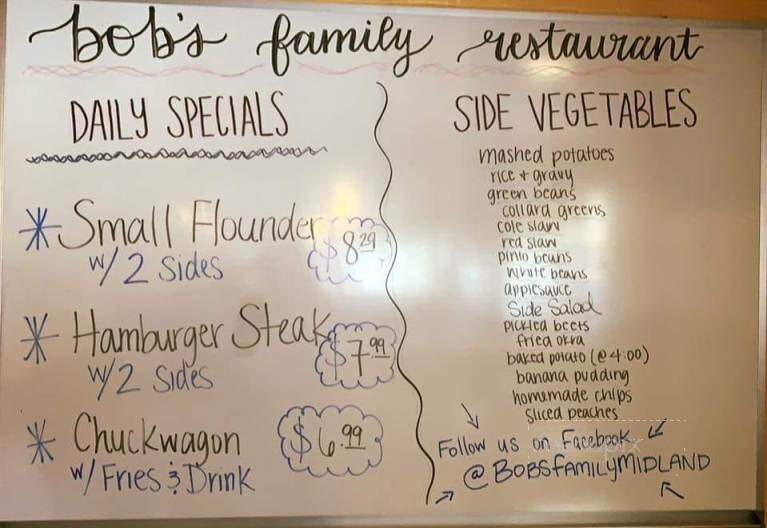 bob's family restaurant
DAILY SPECIALS
* Small Flounder $8.29
w/ 2 Sides
* Hamburger Steak $7.99
w/ 2 Sides
* Chuckwagon $6.99
w/ Fries & Drink
SIDE VEGETABLES
mashed potatoes
rice + gravy
green beans
collard greens
cole slaw
red slaw
pinto beans
white beans
applesauce
Side Salad
pickled beets
fried okra
baked potato (@ 4:00)
banana pudding
homemade chips
sliced peaches
Follow us on Facebook
@BOBSFAMILYMIDLAND